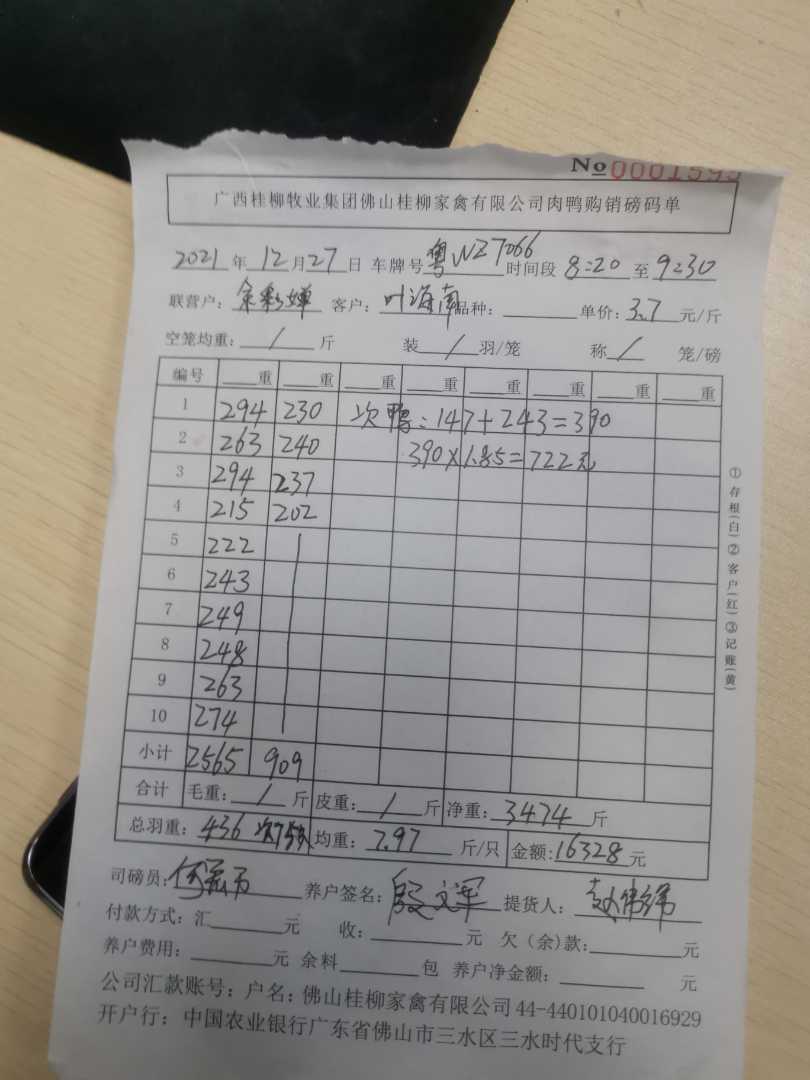 No 0001595
广西桂柳牧业集团佛山桂柳家禽有限公司肉鸭购销磅码单
2021年12月27日 车牌号粤WZ7066时间段8:20至9:30
联营户：余彩婵 客户：叶海南 品种： 单价：3.7元/斤
空笼均重：/斤 装/羽/笼 称/笼/磅
编号 重 重 重 重 重 重 重 重
1 294 230 次鸭：147+243=390
2 263 240 390×1.85=722元
3 294 237
4 215 202
5 222
6 243
7 249
8 248
9 263
10 274
小计 2565 909
合计 毛重：/斤 皮重：/斤 净重：3474斤
总羽重：436 均重：7.97斤/只 金额：16328元
司磅员： 养户签名：殷文军 提货人：
付款方式：汇 元 收： 元 欠（余）款： 元
养户费用： 元 余料 包 养户净金额： 元
公司汇款账号：户名：佛山桂柳家禽有限公司44-440101040016929
开户行：中国农业银行广东省佛山市三水区三水时代支行
①存根(白)②客户(红)③记账(黄)